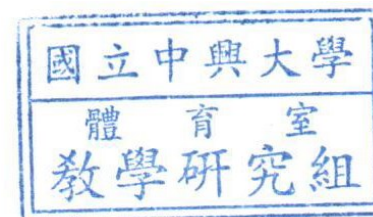 國立中興大學
體育室
教學研究組